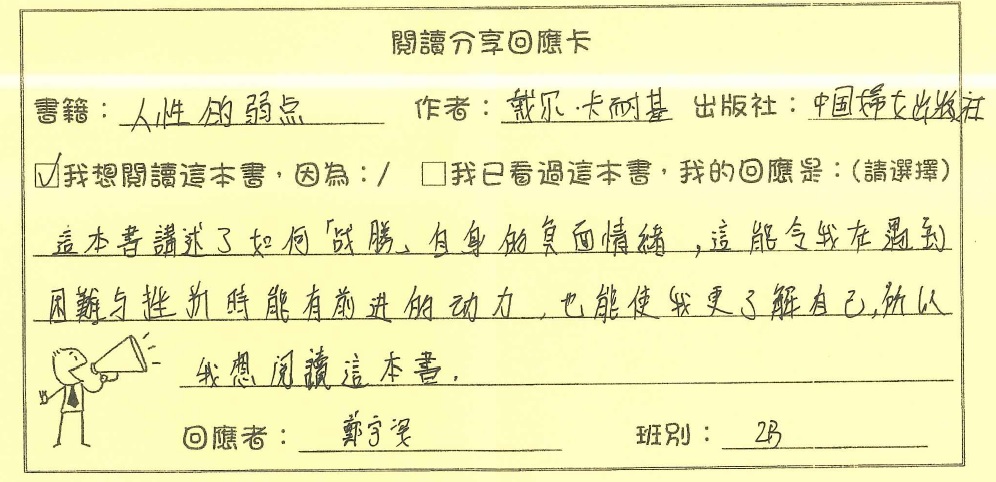 閱讀分享回應卡
書籍：人性的弱点 作者：戴尔·卡耐基 出版社：中国婦女出版社
☑我想閱讀這本書，因為：/ □我已看過這本書，我的回應是：(請選擇)
這本書講述了如何「战勝」自身的負面情緒，這能令我在遇到
困難与挫折時能有前进的动力，也能使我更了解自己,所以
我想阅讀這本書.
回應者：鄭宇 班別：2B